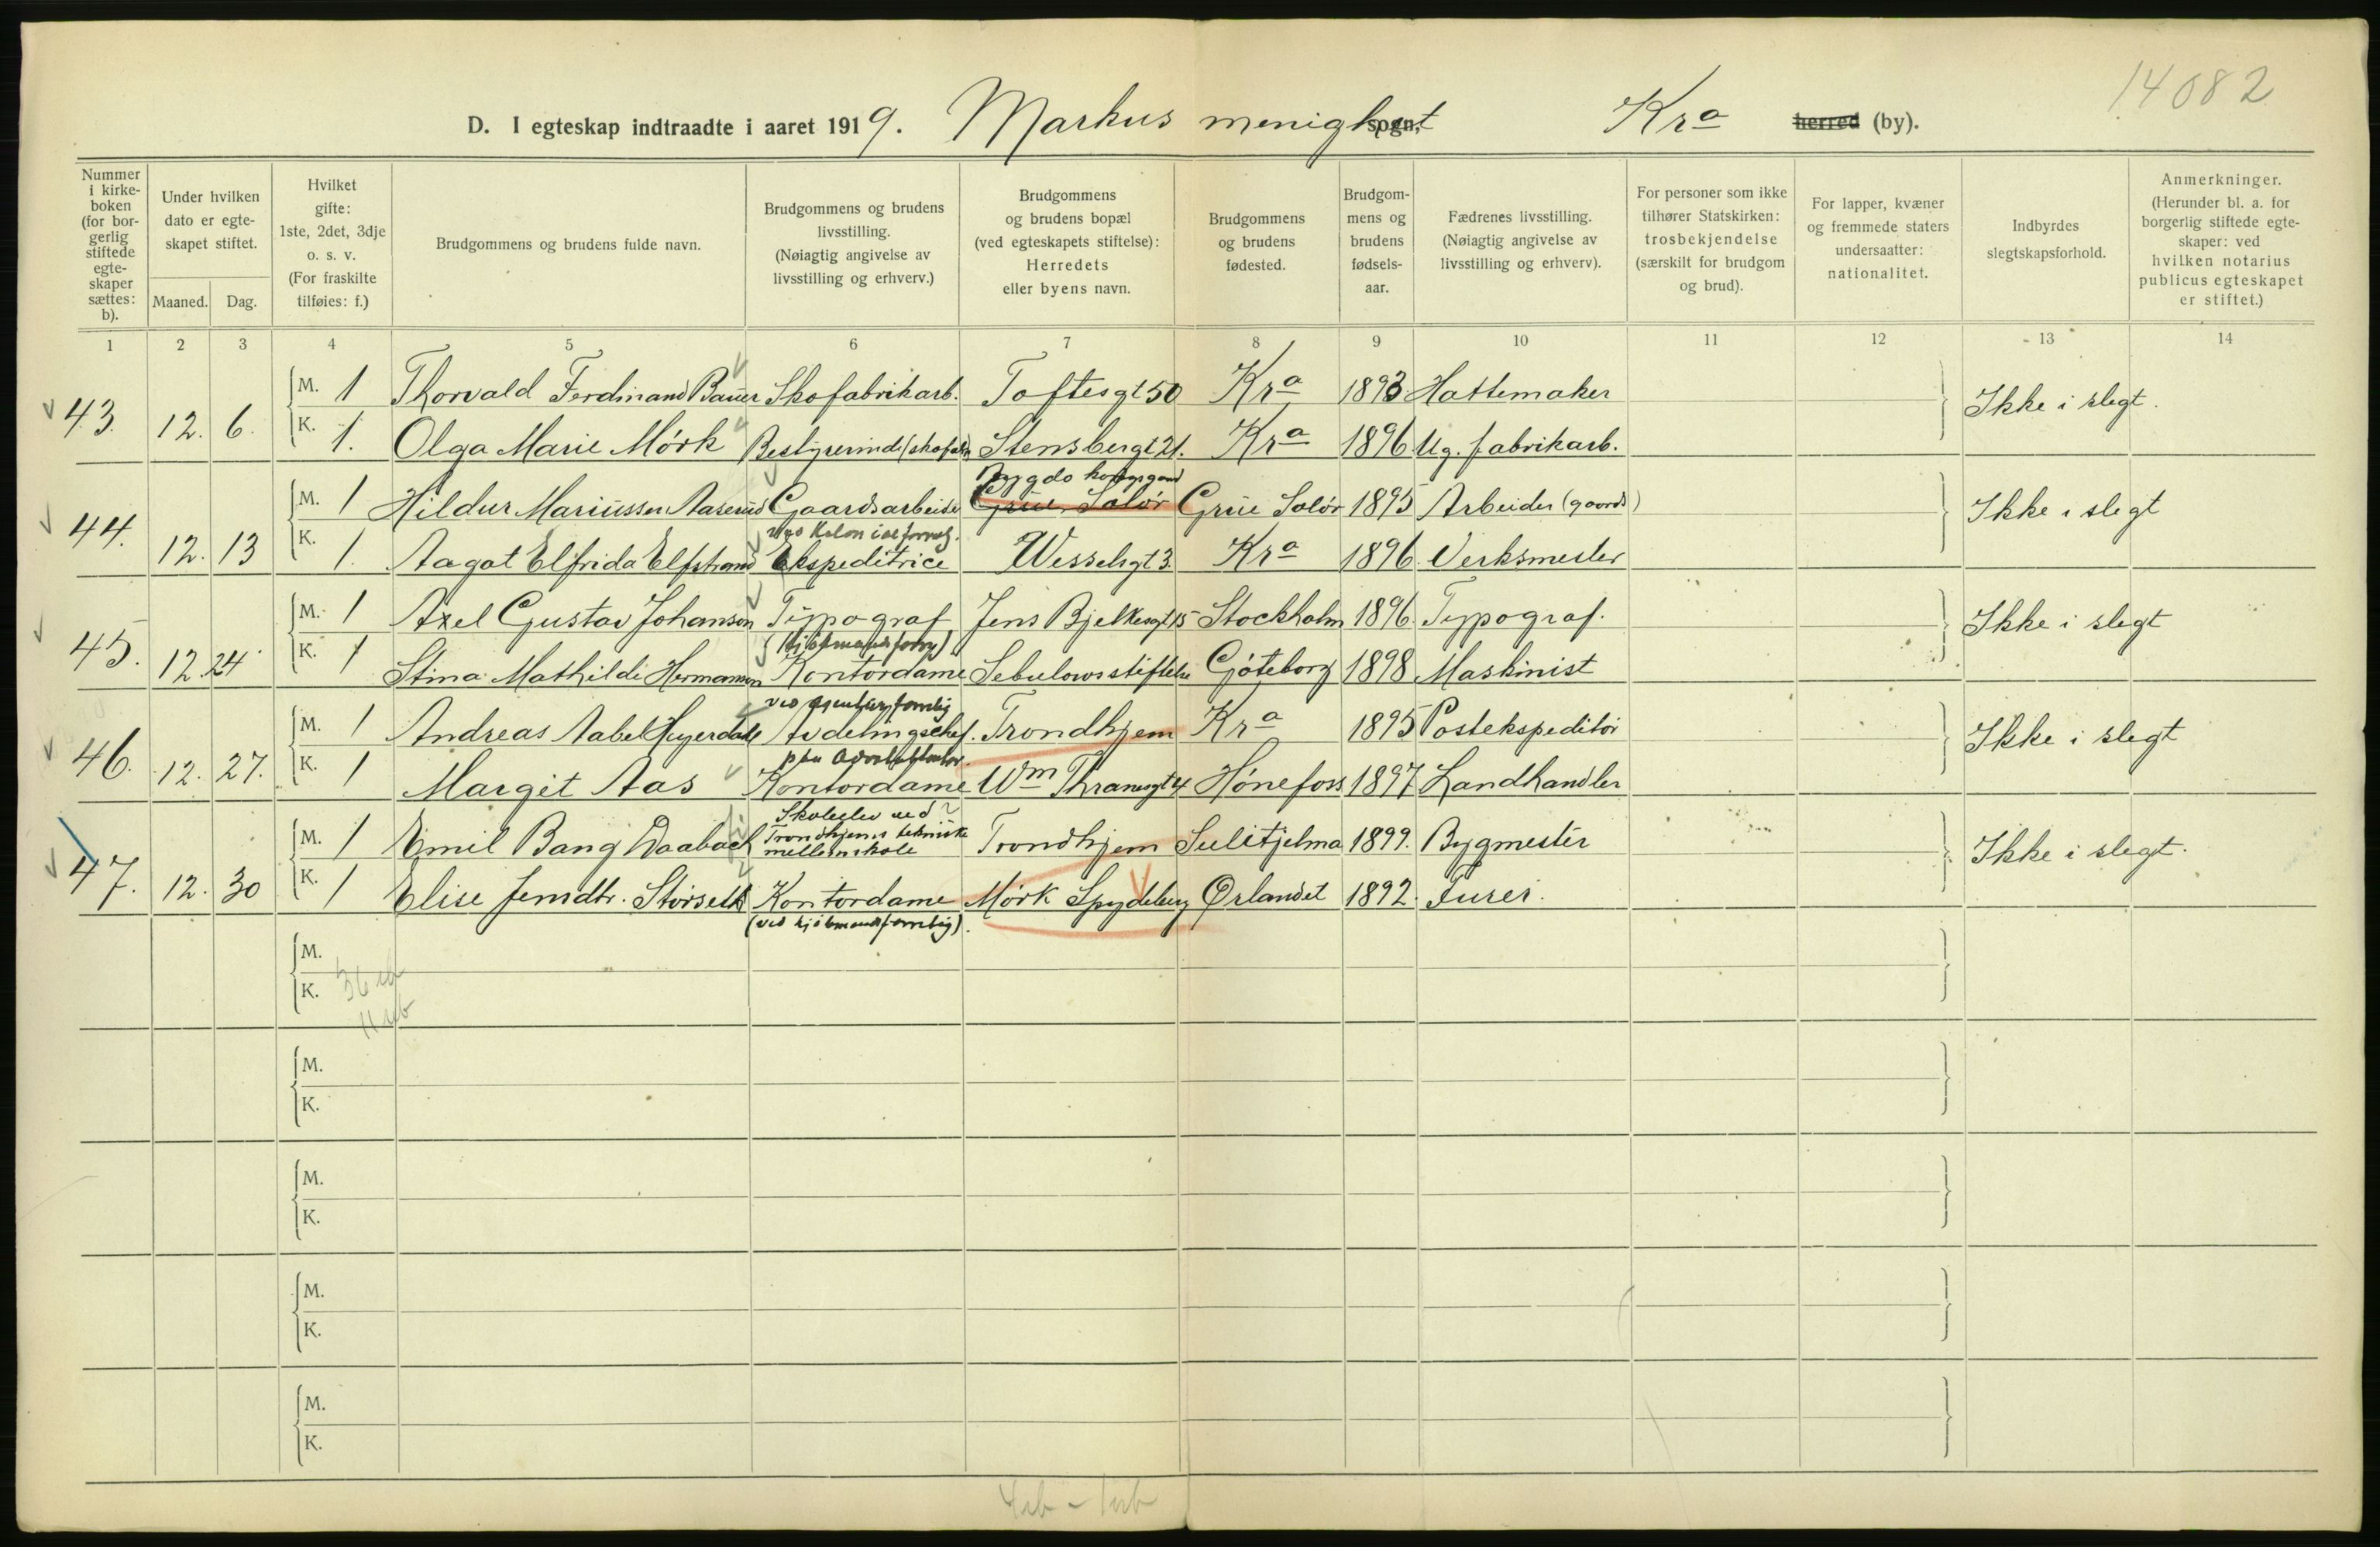 14082
D. I egteskap indtraadte i aaret 1919. Markus menighet sogn, Kra herred (by).
Nummer i kirkeboken (for borgerlig stiftede egteskaper sættes: b).
Under hvilken dato er egteskapet stiftet.
Maaned. Dag.
Hvilket gifte: 1ste, 2det, 3dje o. s. v. (For fraskilte tilføies: f.)
Brudgommens og brudens fulde navn.
Brudgommens og brudens livsstilling. (Nøiagtig angivelse av livsstilling og erhverv.)
Brudgommens og brudens bopæl (ved egteskapets stiftelse): Herredets eller byens navn.
Brudgommens og brudens fødested.
Brudgommens og brudens fødselsaar.
Fædrenes livsstilling. (Nøiagtig angivelse av livsstilling og erhverv).
For personer som ikke tilhører Statskirken: trosbekjendelse (særskilt for brudgom og brud).
For lapper, kvæner og fremmede staters undersaatter: nationalitet.
Indbyrdes slegtskapsforhold.
Anmerkninger. (Herunder bl. a. for borgerlig stiftede egteskaper: ved hvilken notarius publicus egteskapet er stiftet.)
1 2 3 4 5 6 7 8 9 10 11 12 13 14
43. 12. 6. M. 1 Thorvald Ferdinand Bauer Skofabrikarb. Toftesgt 50 Kra 1893 Hattemaker Ikke i slegt.
K. 1. Olga Marie Mørk Bestyrerinde (skofabr) Stensbergt 21. Kra 1896 Ug. fabrikarb.
Bygdo kongsgaard
44. 12. 13 M. 1 Hildur Mariussen Aaserud Gaardsarbeider Grue Solør Grue Solør 1895 Arbeider (gaards) Ikke i slegt
ved Kolonialforretg.
K. 1. Aagot Elfrida Elfstrand Ekspeditrice Wesselsgt 3. Kra 1896 Verksmester
45. 12. 24 M. 1 Axel Gustav Johanson Typograf Jens Bjelkesgt 15 Stockholm 1896 Typograf. Ikke i slegt
(Kjøbmandsforrg)
K. 1 Stina Mathilde Hermansen Kontordame Sebulowsstiftelse Göteborg 1898 Maskinist
ved agenturforrtng
46. 12. 27. M. 1 Andreas Aabel Heyerdahl Avdelingschef. Trondhjem Kra 1895 Postekspeditør Ikke i slegt
paa Advokatkontor.
K. 1 Margit Aas Kontordame Wm Thranesgt 4 Hønefoss 1897 Landhandler
Skoleelev ved
Trondhjems tekniske
mellemskole
47. 12. 30 M. 1 Emil Bang Daabach Trondhjem Sulitjelma 1899. Bygmester Ikke i slegt.
K. 1 Elise Jemdtr. Størseth Kontordame Mørk Spydeberg Ørlandet 1892. Furer.
(ved kjøbmandsforretng).
M.
K.
M.
K.
M.
K.
M.
K.
M.
K.